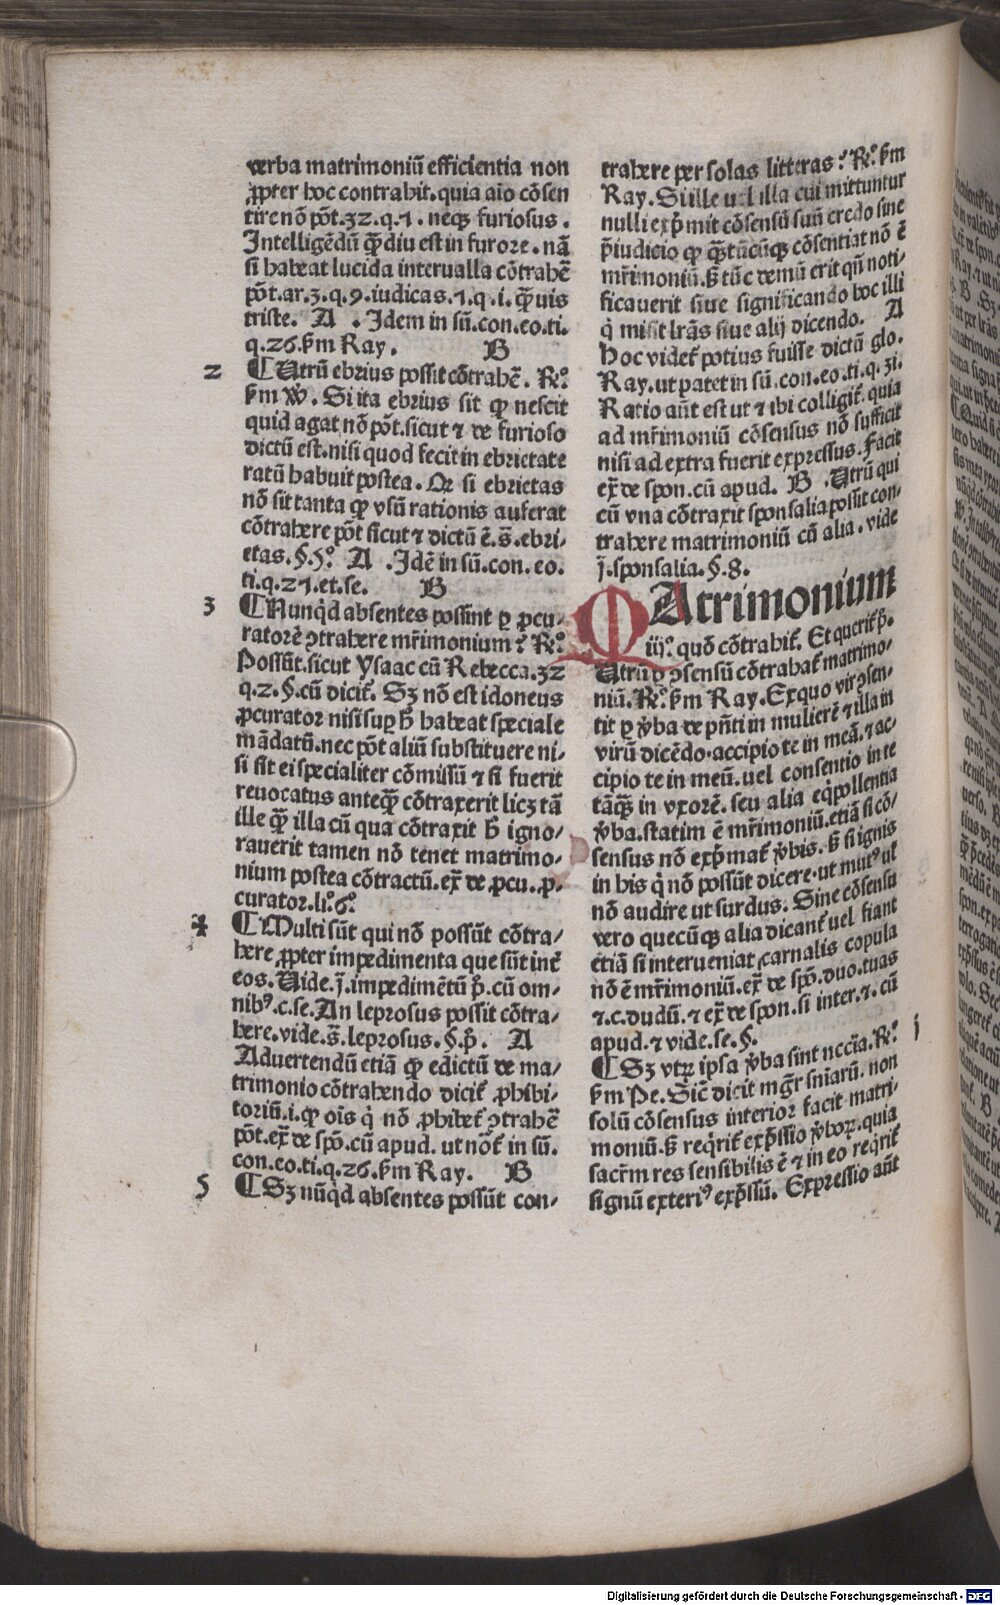 verba matrimoniū efficientia non
ꝓpter hoc contrahit. quia aīo cōsen
tire nō pōt. 32. q. 1. neqꝫ furiosus.
Intelligēdū ꝙ̄diu est in furore. nā
si habeat lucida interualla cōtrahē
pōt. ar. 3. q. 9. iudicas. 7. q. i. ꝙ̄uis
triste. A. Idem in sū. con. eo. ti.
q. 26. ẜm Ray. B
2 ¶ Utrū ebrius possit cōtrahē. Rº.
ẜm W̉. Si ita ebrius sit ꝙ nescit
quid agat nō pōt. sicut ⁊ de furioso
dictū est. nisi quod fecit in ebrietate
ratū habuit postea. Qꝛ si ebrietas
nō sit tanta ꝙ vsū rationis auferat
cōtrahere pōt sicut ⁊ dictū ē. s̄. ebri/
etas. §. 5º. A. Idē in sū. con. eo.
ti. q. 27. et. se. B
3 ¶ Nunqͥd absentes possint ꝑ ꝓcu/
ratorē ꝯtrahere mr̄imonium? Rº.
Possūt. sicut Ysaac cū Rebecca. 32
q. 2. §. cū dicit̄. Sꝫ nō est idoneus
ꝓcurator nisi suꝑ hͦ habeat speciale
mādatū. nec pōt aliū substituere ni/
si sit ei specialiter cōmissū ⁊ si fuerit
reuocatus anteqꝙ̄ cōtraxerit licꝫ tā
ille ꝙ̄ illa cū qua cōtraxit hͦ igno/
rauerit tamen nō tenet matrimo/
nium postea cōtractū. ex̄ de ꝓcu. ꝓ/
curator. li. 6º.
4 ¶ Multi sūt qui nō possūt cōtra/
here ꝓpter impedimenta que sūt int̄
eos. Uide. j̄. impedimētū p̄. cū om/
nibꝰ. c. se. An leprosus possit cōtra/
here. vide. s̄. leprosus. §. p̄. A
Aduertendū etiā ꝙ edictū de ma/
trimonio cōtrahendo dicit̄ ꝓhibi/
toriū. i. ꝙ oīs qͥ nō ꝓhibet̄ ꝯtrahē
pōt. ex̄ de spō. cū apud. ut nōt̄ in sū.
con. eo. ti. q. 26. ẜm Ray. B
5 ¶ Sꝫ nūqͥd absentes possūt con/
trahere per solas litteras? Rº. ẜm
Ray. Si ille uel illa cui mittuntur
nulli exp̄mit cōsensū suū credo sine
p̄iudicio ꝙ ꝙ̄tūcūqꝫ cōsentiat nō ē
mr̄imoniū. ꝫ tūc demū erit qn̄ noti/
ficauerit siue significando hoc illi
qͥ misit lr̄as siue alij dicendo. A
Hoc videt̄ potius fuisse dictū glo.
Ray. ut patet in sū. con. eo. ti. q. 31.
Ratio aūt est ut ⁊ ibi colligit̄. quia
ad mr̄imoniū cōsensus nō sufficit
nisi ad extra fuerit expressus. Facit
ex̄ de spon. cū apud. B. Utrū qui
cū vna cōtraxit sponsalia possit con/
trahere matrimoniū cū alia. vide
j̄. sponsalia. §. 8.
MAtrimonium
iijº. quō cōtrahit̄. Et querit̄ p̄.
Utrū ꝑ ꝯsensū cōtrahat̄ matrimo/
niū. Rº. ẜm Ray. Ex quo vir ꝯsen/
tit ꝑ v̄ba de pn̄ti in mulierē ⁊ illa in
virū dicēdo. accipio te in meā. ⁊ ac/
cipio te in meū. uel consentio in te
tāꝙ̄ in vxorē. seu alia eq̄pollentia
v̄ba. statim ē mr̄imoniū. etiā si cō/
sensus nō exp̄mat̄ v̄bis. ꝫ si ignis
in his qͥ nō possūt dicere. ut mutꝰ ul̄
nō audire ut surdus. Sine cōsensu
vero quecūqꝫ alia dicant̄ uel fiant
etiā si interueniat carnalis copula
nō ē mr̄imoniū. ex̄ de spō. duo. tuas
⁊. c. dudū. ⁊ ex̄ de spon. si inter. ⁊. cū
apud. ⁊ vide. se. §.
¶ Sꝫ vtꝝ ipsa v̄ba sint nccīa. Rº. i
ẜm Pe. Sic̄ dicit mgr̄ sn̄iarū. non
solū cōsensus interior facit matri/
moniū. ꝫ reqͥrit̄ exp̄ssio v̄boꝝ. quia
sacr̄m res sensibilis ē ⁊ in eo reqͥrit̄
signū exteriꝰ exp̄ssū. Expressio aūt
Digitalisierung gefördert durch die Deutsche Forschungsgemeinschaft - DFG